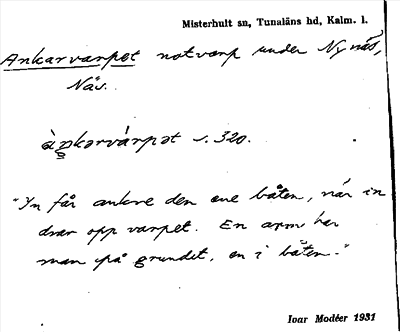 Misterhult sn, Tunaläns hd, Kalm. l.
Ankarvarpet notvarp under Nynäs,
Näs.
àŋkərvárpət s. 320.
"In får ankre den ene båten, när in
drar opp varpet. En arm har
man på grundet, en i båten."
Ivar Modéer 1931